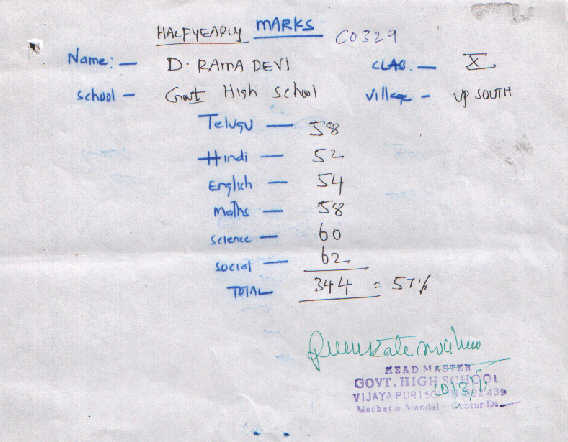 HALFYEARLY MARKS C0329
Name:— D. RAMA DEVI CLAS.— X
School — Govt High School Village - VP SOUTH
Telugu — 58
Hindi — 52
English — 54
Maths — 58
Science — 60
Social — 62
TOTAL 344 = 57%
HEAD MASTER
GOVT. HIGH SCHOOL
VIJAYAPURI 439
Macherla Mandal Guntur Dt.